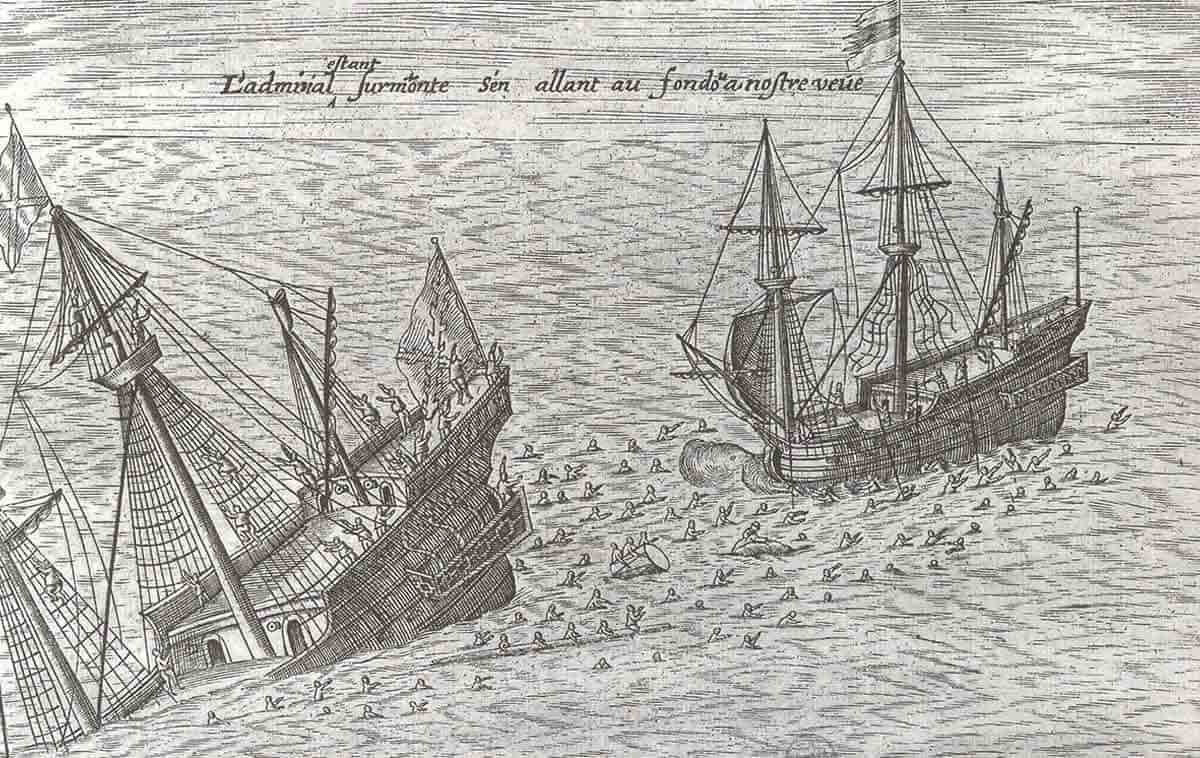 estant
L'admiral surmonte S'en allant au fond a nostre veüe